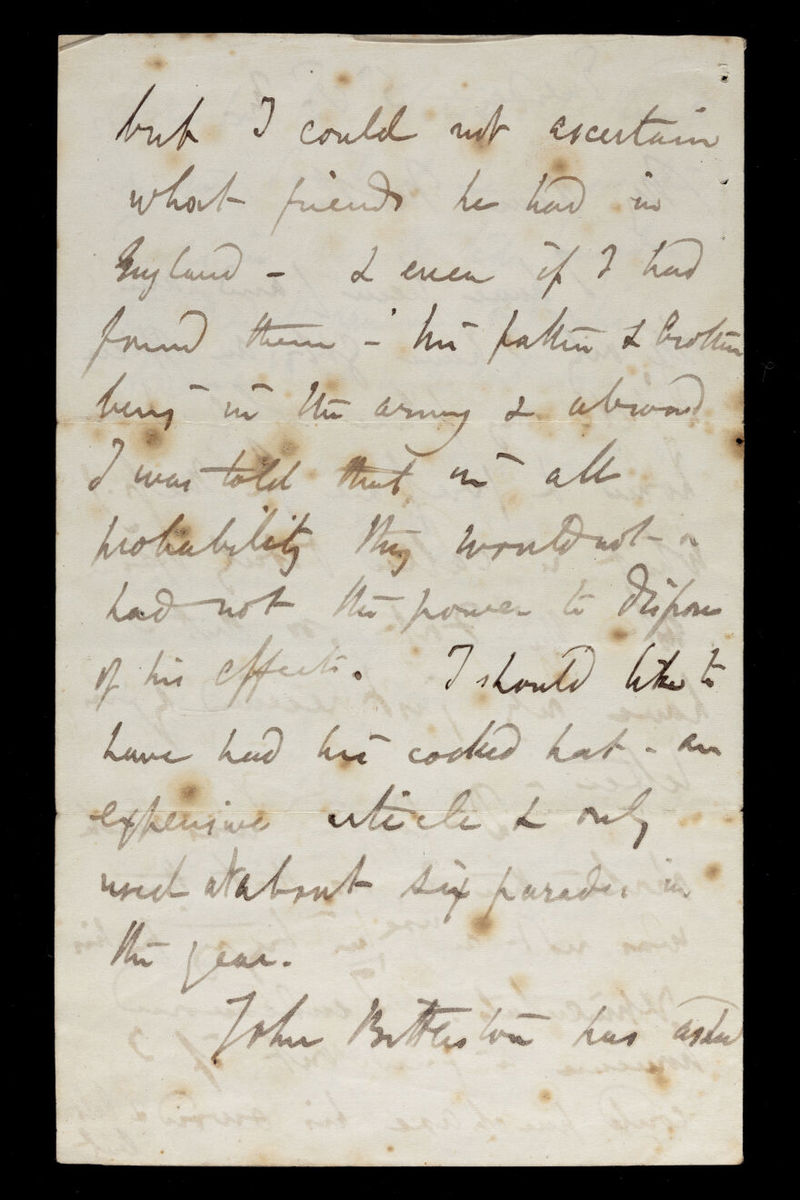 but I could not ascertain
what friends he had in
England - & even if I had
found them - his father & brother
being in the army & abroad
I was told that in all
probability they would not or
had not the power to dispose
of his effects. I should like to
have had his cocked hat - an
expensive article & only
used at about six parades in
the year.
John has asked